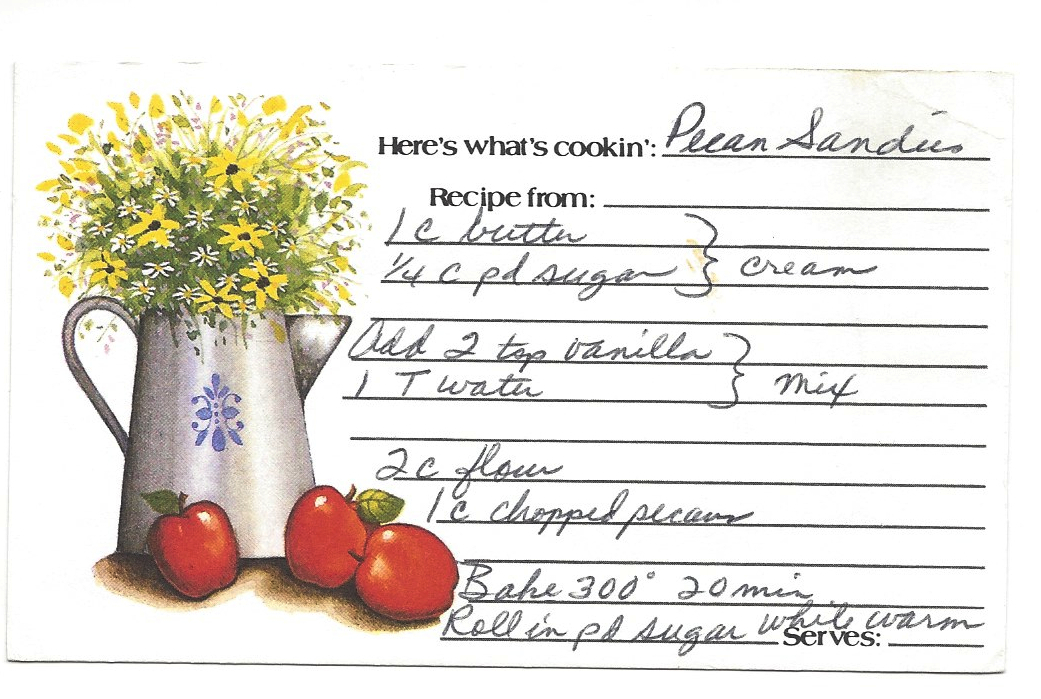 Here's what's cookin': Pecan Sandies
Recipe from:
1 c butter
1/4 c pd sugar } cream
Add 2 tsp vanilla
1 T water } mix
2 c flour
1 c chopped pecans
Bake 300° 20 min
Roll in pd sugar while warm
Serves: